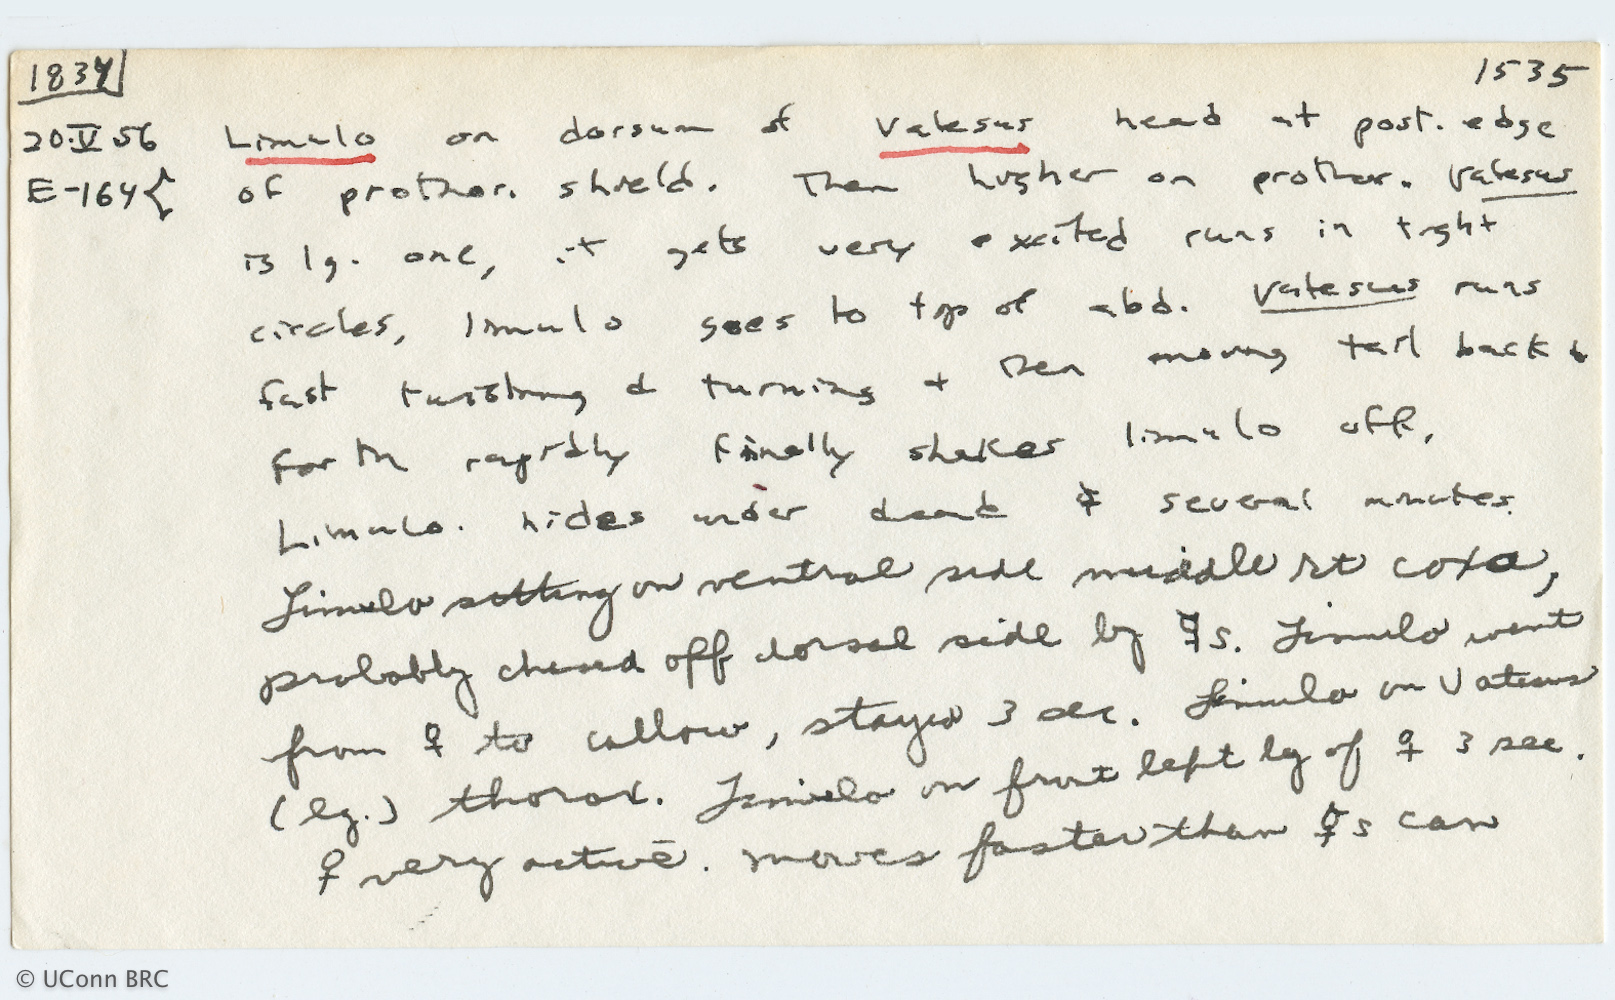 1834 1535
20.V 56 Limulo on dorsum of Vatesus head at post. edge
E-164{ of prothor. shield. Then higher on prothor. Vatesus
is lg. one, it gets very excited runs in tight
circles, limulo goes to top of abd. Vatesus runs
fast twisting & turning + then moving tail back &
forth rapidly finally shakes limulo off.
Limulo. hides under dead ☿ several minutes.
Limulo sitting on ventral side middle rt coxa,
probably chased off dorsal side by ☿s. Limulo went
from ♀ to callow, stayed 3 sec. Limulo on Vatesus
(lg.) thorax. Limulo on front left lg of ♀ 3 sec.
♀ very active. moves faster than ☿s can
© UConn BRC